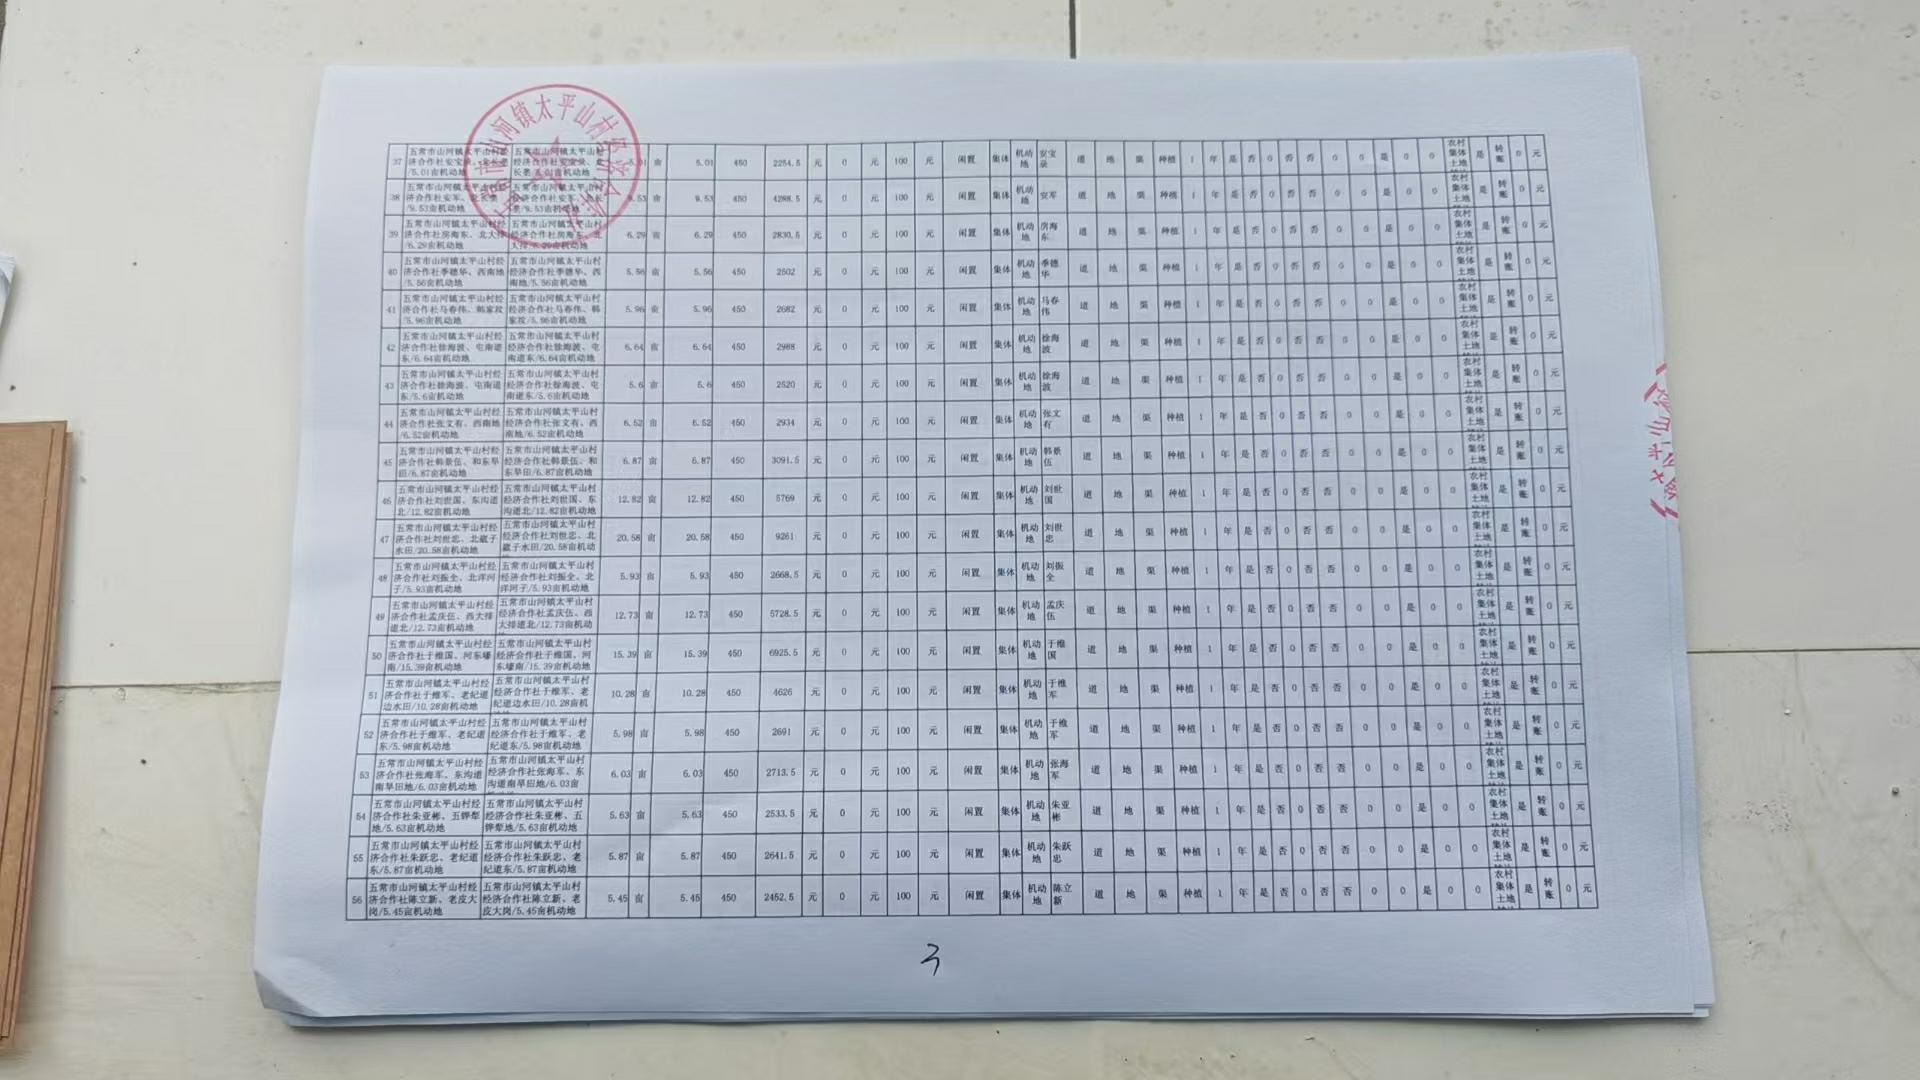 37 五常市山河镇太平山村经济合作社安宝录、北长垄/5.01亩机动地 五常市山河镇太平山村经济合作社安宝录、北长垄/5.01亩机动地 5.01 亩 5.01 450 2254.5 元 0 元 100 元 闲置 集体 机动地 安宝录 道 地 渠 种植 1 年 是 否 0 否 否 0 0 是 0 0 农村集体土地 是 转账 0 元
38 五常市山河镇太平山村经济合作社安军、北长垄/9.53亩机动地 五常市山河镇太平山村经济合作社安军、北长垄/9.53亩机动地 9.53 亩 9.53 450 4288.5 元 0 元 100 元 闲置 集体 机动地 安军 道 地 渠 种植 1 年 是 否 0 否 否 0 0 是 0 0 农村集体土地 是 转账 0 元
39 五常市山河镇太平山村经济合作社房海东、北大排/6.29亩机动地 五常市山河镇太平山村经济合作社房海东、北大排/6.29亩机动地 6.29 亩 6.29 450 2830.5 元 0 元 100 元 闲置 集体 机动地 房海东 道 地 渠 种植 1 年 是 否 0 否 否 0 0 是 0 0 农村集体土地 是 转账 0 元
40 五常市山河镇太平山村经济合作社季德华、西南地/5.56亩机动地 五常市山河镇太平山村经济合作社季德华、西南地/5.56亩机动地 5.56 亩 5.56 450 2502 元 0 元 100 元 闲置 集体 机动地 季德华 道 地 渠 种植 1 年 是 否 0 否 否 0 0 是 0 0 农村集体土地 是 转账 0 元
41 五常市山河镇太平山村经济合作社马春伟、韩家坟/5.96亩机动地 五常市山河镇太平山村经济合作社马春伟、韩家坟/5.96亩机动地 5.96 亩 5.96 450 2682 元 0 元 100 元 闲置 集体 机动地 马春伟 道 地 渠 种植 1 年 是 否 0 否 否 0 0 是 0 0 农村集体土地 是 转账 0 元
42 五常市山河镇太平山村经济合作社徐海波、屯南道东/6.64亩机动地 五常市山河镇太平山村经济合作社徐海波、屯南道东/6.64亩机动地 6.64 亩 6.64 450 2988 元 0 元 100 元 闲置 集体 机动地 徐海波 道 地 渠 种植 1 年 是 否 0 否 否 0 0 是 0 0 农村集体土地 是 转账 0 元
43 五常市山河镇太平山村经济合作社徐海波、屯南道东/5.6亩机动地 五常市山河镇太平山村经济合作社徐海波、屯南道东/5.6亩机动地 5.6 亩 5.6 450 2520 元 0 元 100 元 闲置 集体 机动地 徐海波 道 地 渠 种植 1 年 是 否 0 否 否 0 0 是 0 0 农村集体土地 是 转账 0 元
44 五常市山河镇太平山村经济合作社张文有、西南地/6.52亩机动地 五常市山河镇太平山村经济合作社张文有、西南地/6.52亩机动地 6.52 亩 6.52 450 2934 元 0 元 100 元 闲置 集体 机动地 张文有 道 地 渠 种植 1 年 是 否 0 否 否 0 0 是 0 0 农村集体土地 是 转账 0 元
45 五常市山河镇太平山村经济合作社韩景伍、和东旱田/6.87亩机动地 五常市山河镇太平山村经济合作社韩景伍、和东旱田/6.87亩机动地 6.87 亩 6.87 450 3091.5 元 0 元 100 元 闲置 集体 机动地 韩景伍 道 地 渠 种植 1 年 是 否 0 否 否 0 0 是 0 0 农村集体土地 是 转账 0 元
46 五常市山河镇太平山村经济合作社刘世国、东沟道北/12.82亩机动地 五常市山河镇太平山村经济合作社刘世国、东沟道北/12.82亩机动地 12.82 亩 12.82 450 5769 元 0 元 100 元 闲置 集体 机动地 刘世国 道 地 渠 种植 1 年 是 否 0 否 否 0 0 是 0 0 农村集体土地 是 转账 0 元
47 五常市山河镇太平山村经济合作社刘世忠、北葳子水田/20.58亩机动地 五常市山河镇太平山村经济合作社刘世忠、北葳子水田/20.58亩机动 20.58 亩 20.58 450 9261 元 0 元 100 元 闲置 集体 机动地 刘世忠 道 地 渠 种植 1 年 是 否 0 否 否 0 0 是 0 0 农村集体土地 是 转账 0 元
48 五常市山河镇太平山村经济合作社刘振全、北洋河子/5.93亩机动地 五常市山河镇太平山村经济合作社刘振全、北洋河子/5.93亩机动地 5.93 亩 5.93 450 2668.5 元 0 元 100 元 闲置 集体 机动地 刘振全 道 地 渠 种植 1 年 是 否 0 否 否 0 0 是 0 0 农村集体土地 是 转账 0 元
49 五常市山河镇太平山村经济合作社孟庆伍、西大排道北/12.73亩机动地 五常市山河镇太平山村经济合作社孟庆伍、西大排道北/12.73亩机动 12.73 亩 12.73 450 5728.5 元 0 元 100 元 闲置 集体 机动地 孟庆伍 道 地 渠 种植 1 年 是 否 0 否 否 0 0 是 0 0 农村集体土地 是 转账 0 元
50 五常市山河镇太平山村经济合作社于维国、河东壕南/15.39亩机动地 五常市山河镇太平山村经济合作社于维国、河东壕南/15.39亩机动地 15.39 亩 15.39 450 6925.5 元 0 元 100 元 闲置 集体 机动地 于维国 道 地 渠 种植 1 年 是 否 0 否 否 0 0 是 0 0 农村集体土地 是 转账 0 元
51 五常市山河镇太平山村经济合作社于维军、老纪道边水田/10.28亩机动地 五常市山河镇太平山村经济合作社于维军、老纪道边水田/10.28亩机 10.28 亩 10.28 450 4626 元 0 元 100 元 闲置 集体 机动地 于维军 道 地 渠 种植 1 年 是 否 0 否 否 0 0 是 0 0 农村集体土地 是 转账 0 元
52 五常市山河镇太平山村经济合作社于维军、老纪道东/5.98亩机动地 五常市山河镇太平山村经济合作社于维军、老纪道东/5.98亩机动地 5.98 亩 5.98 450 2691 元 0 元 100 元 闲置 集体 机动地 于维军 道 地 渠 种植 1 年 是 否 0 否 否 0 0 是 0 0 农村集体土地 是 转账 0 元
53 五常市山河镇太平山村经济合作社张海军、东沟道南旱田地/6.03亩机动地 五常市山河镇太平山村经济合作社张海军、东沟道南旱田地/6.03亩 6.03 亩 6.03 450 2713.5 元 0 元 100 元 闲置 集体 机动地 张海军 道 地 渠 种植 1 年 是 否 0 否 否 0 0 是 0 0 农村集体土地 是 转账 0 元
54 五常市山河镇太平山村经济合作社朱亚彬、五铧犁地/5.63亩机动地 五常市山河镇太平山村经济合作社朱亚彬、五铧犁地/5.63亩机动地 5.63 亩 5.63 450 2533.5 元 0 元 100 元 闲置 集体 机动地 朱亚彬 道 地 渠 种植 1 年 是 否 0 否 否 0 0 是 0 0 农村集体土地 是 转账 0 元
55 五常市山河镇太平山村经济合作社朱跃忠、老纪道东/5.87亩机动地 五常市山河镇太平山村经济合作社朱跃忠、老纪道东/5.87亩机动地 5.87 亩 5.87 450 2641.5 元 0 元 100 元 闲置 集体 机动地 朱跃忠 道 地 渠 种植 1 年 是 否 0 否 否 0 0 是 0 0 农村集体土地 是 转账 0 元
56 五常市山河镇太平山村经济合作社陈立新、老皮大岗/5.45亩机动地 五常市山河镇太平山村经济合作社陈立新、老皮大岗/5.45亩机动地 5.45 亩 5.45 450 2452.5 元 0 元 100 元 闲置 集体 机动地 陈立新 道 地 渠 种植 1 年 是 否 0 否 否 0 0 是 0 0 农村集体土地 是 转账 0 元
3